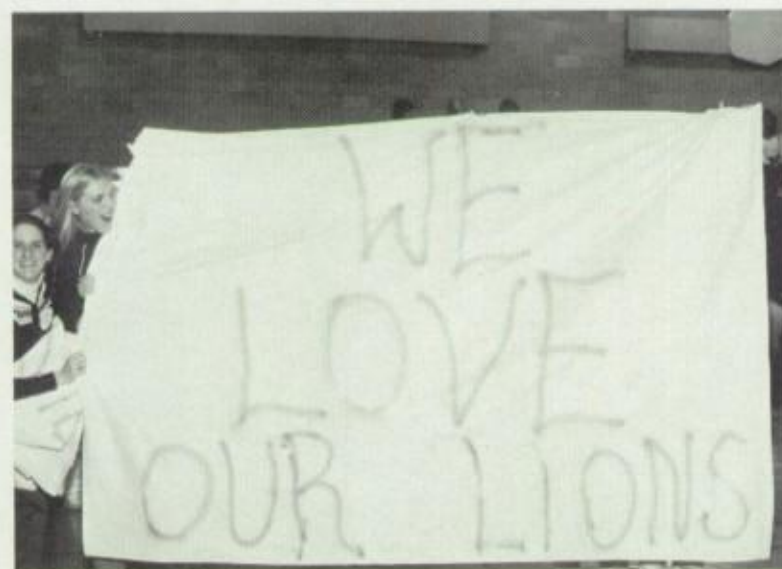 WE
LOVE
OUR LIONS